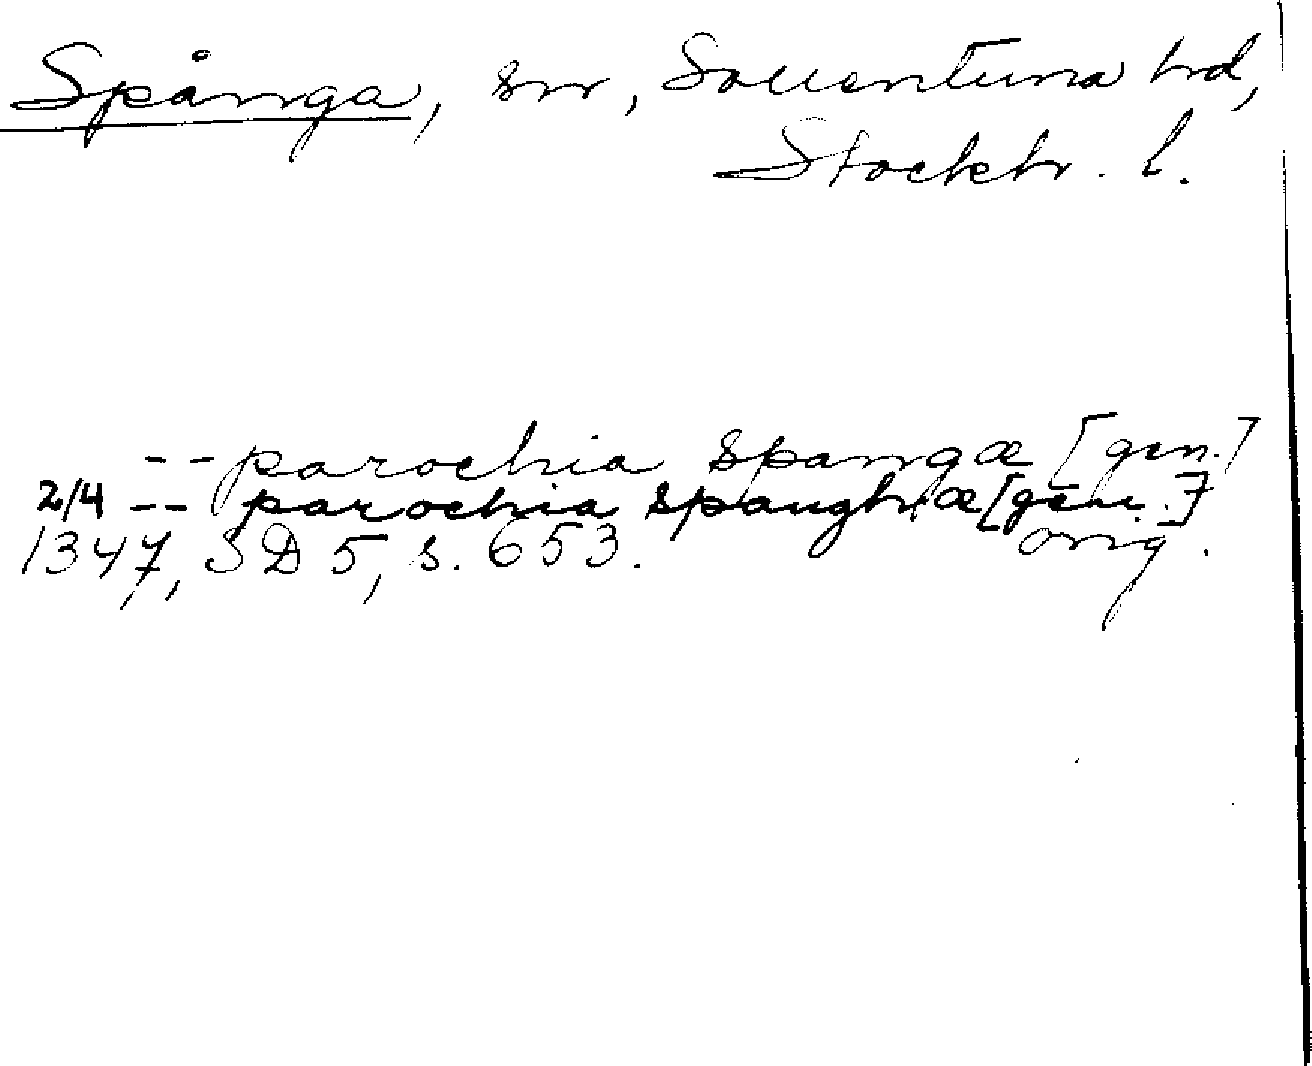 Spånga, sn, Sollentuna hd,
Stockh. l.
-- parochia spanga [gen.]
2/4 -- parochia spangh æ [gen.]
1347, SD 5, s. 653. orig.